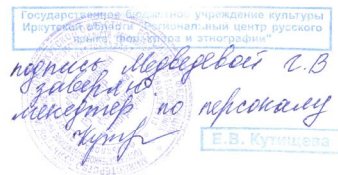 Государственное бюджетное учреждение культуры
Иркутской области "Региональный центр русского
языка, фольклора и этнографии"
подпись Медведевой Г.В
заверяю
менеджер по персоналу
Е.В. Кутищева